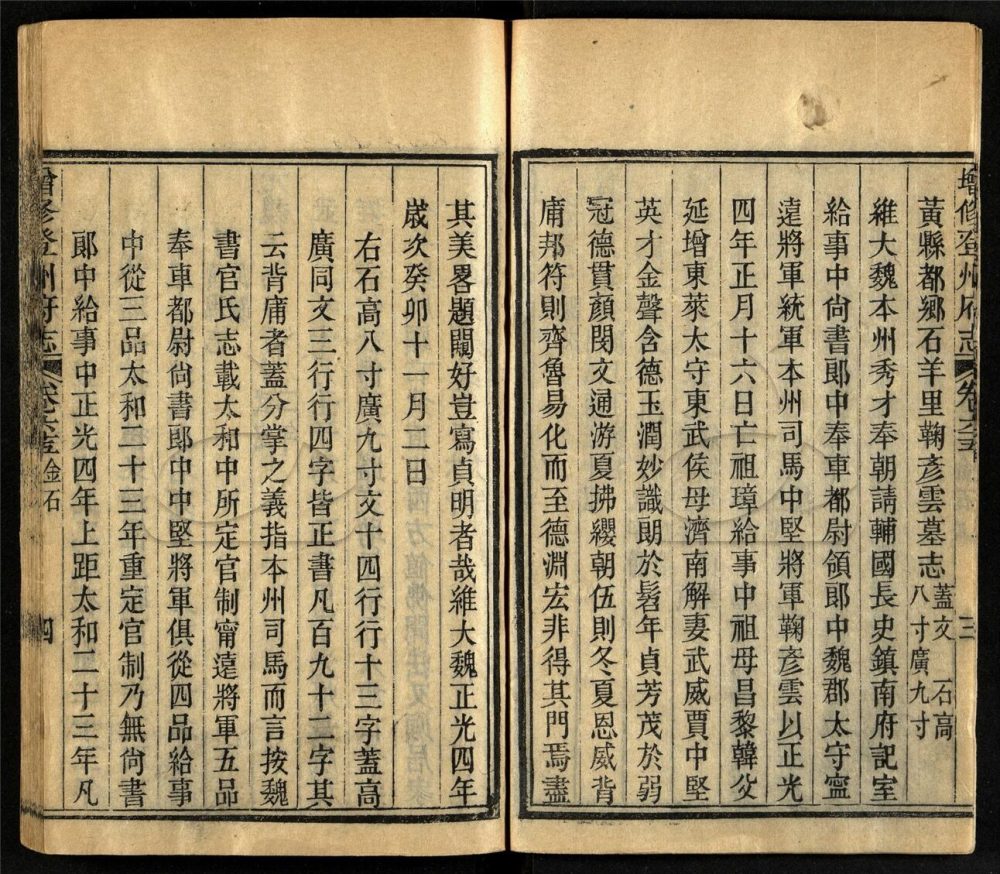 增修登州府志 卷六十五 三
黃縣都鄉石羊里鞠彥雲墓志 蓋文 石高八寸廣九寸
維大魏本州秀才奉朝請輔國長史鎮南府記室
給事中尙書郎中奉車都尉領郎中魏郡太守寧
遠將軍統軍本州司馬中堅將軍鞠彥雲以正光
四年正月十六日亡祖璋給事中祖母昌黎韓父
延增東萊太守東武侯母濟南解妻武威賈中堅
英才金聲含德玉潤妙識朗於髫年貞芳茂於弱
冠德貫顏閔文通游夏拂纓朝伍則冬夏恩威背
庸邦符則齊魯易化而至德淵宏非得其門焉盡
其美畧題闕好豈寫貞明者哉維大魏正光四年
歲次癸卯十一月二日
右石高八寸廣九寸文十四行行十三字蓋高
廣同文三行行四字皆正書凡百九十二字其
云背庸者蓋分掌之義指本州司馬而言按魏
書官氏志載太和中所定官制甯遠將軍五品
奉車都尉尙書郎中中堅將軍俱從四品給事
中從三品太和二十三年重定官制乃無尙書
郞中給事中正光四年上距太和二十三年凡
增修登州府志 卷六十五 金石 四